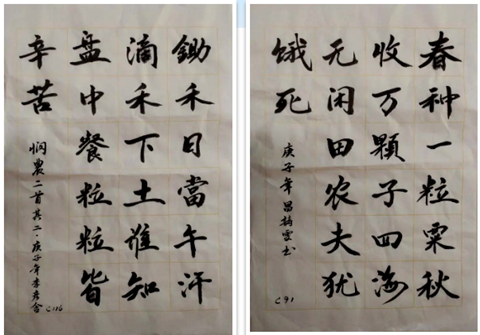 鋤禾日當午汗
滴禾下土谁知
盘中餐粒粒皆
辛苦
悯農二首其二·庚子年李
C116
春种一粒粟秋
收万顆子四海
无闲田农夫犹
饿死
庚子年
C91